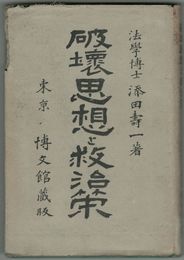 法學博士 添田壽一著
破壞思想と救治策
東京・博文館藏版